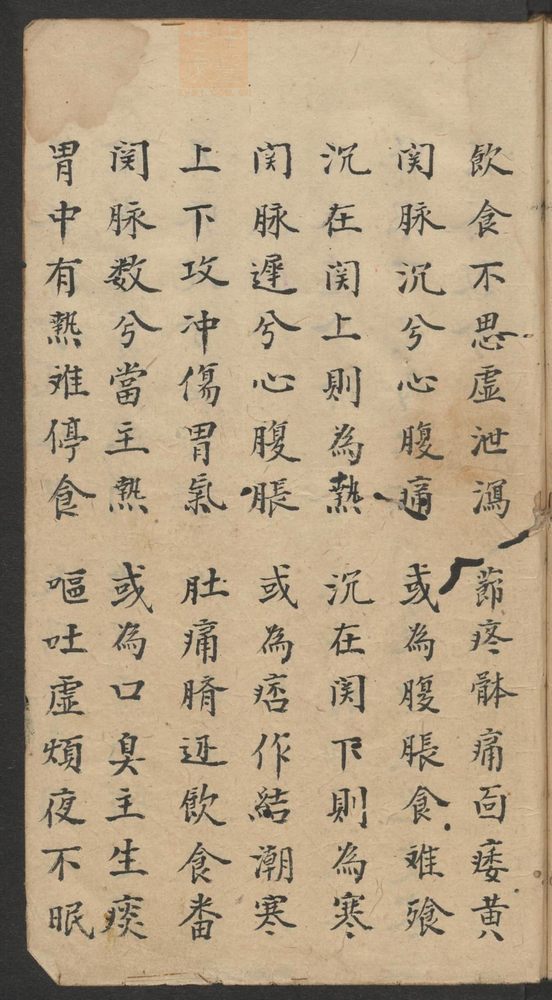 飲食不思虚泄瀉 節疼骵痛面痿黄
関脉沉兮心腹痛 或為腹脹食难飱
沉在関上則為熱 沉在関下則為寒
関脉遲兮心腹脹 或為痞作結潮寒
上下攻冲傷胃氣 肚痛臍迊飲食畨
関脉数兮當主熱 或為口臭主生痰
胃中有熱难停食 嘔吐虚煩夜不眠